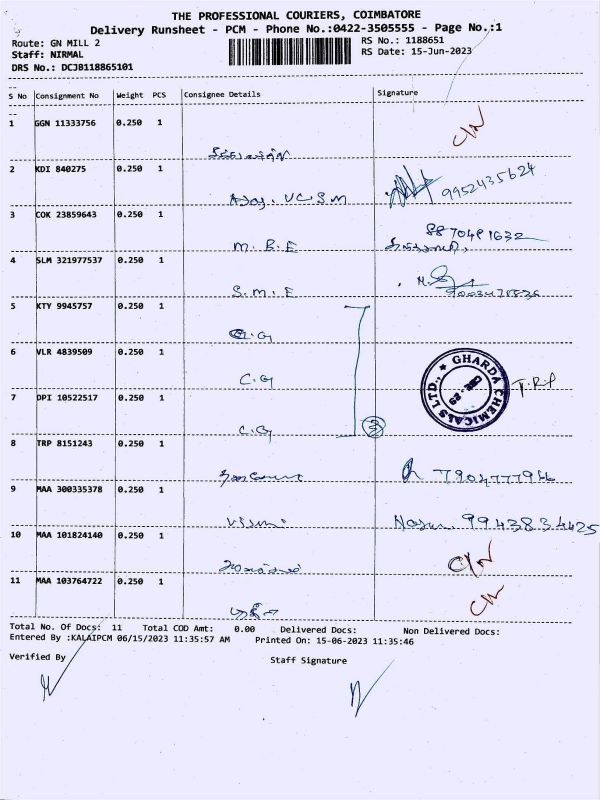 THE PROFESSIONAL COURIERS, COIMBATORE
Delivery Runsheet - PCM - Phone No.:0422-3505555 - Page No.:1
Route: GN MILL 2 RS No.: 1188651
Staff: NIRMAL RS Date: 15-Jun-2023
DRS No.: DCJB118865101
S No Consignment No Weight PCS Consignee Details Signature
1 GGN 11333756 0.250 1 C/N
2 KDI 840275 0.250 1 9952435624
VCSM
3 COK 23859643 0.250 1
M.B.E
4 SLM 321977537 0.250 1
S.M.E
5 KTY 9945757 0.250 1
C.G
6 VLR 4839509 0.250 1 GHARDA CHEMICALS LTD.,
C.G
7 DPI 10522517 0.250 1
C.G 3
8 TRP 8151243 0.250 1
9 MAA 300335378 0.250 1
10 MAA 101824140 0.250 1 C/N
11 MAA 103764722 0.250 1 C/N
Total No. Of Docs: 11 Total COD Amt: 0.00 Delivered Docs: Non Delivered Docs:
Entered By :KALAIPCM 06/15/2023 11:35:57 AM Printed On: 15-06-2023 11:35:46
Verified By Staff Signature